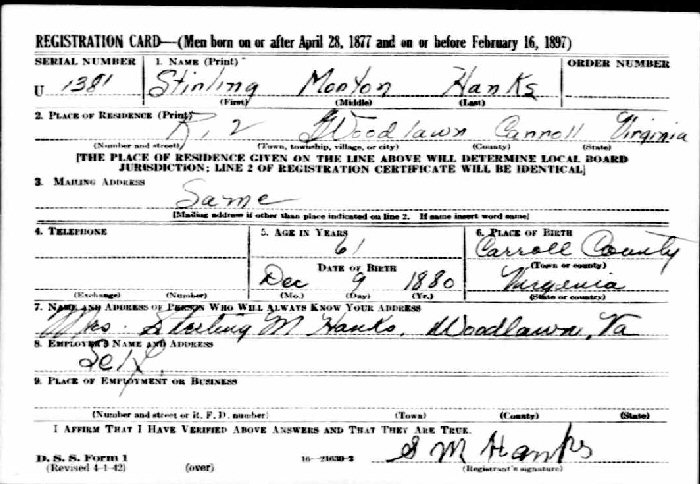 REGISTRATION CARD—(Men born on or after April 28, 1877 and on or before February 16, 1897)
SERIAL NUMBER 1. NAME (Print) ORDER NUMBER
U 1381 Stirling Monton Hanks
(First) (Middle) (Last)
2. PLACE OF RESIDENCE (Print)
R. 2 Woodlawn Carroll Virginia
(Number and street) (Town, township, village, or city) (County) (State)
[THE PLACE OF RESIDENCE GIVEN ON THE LINE ABOVE WILL DETERMINE LOCAL BOARD
JURISDICTION; LINE 2 OF REGISTRATION CERTIFICATE WILL BE IDENTICAL]
3. MAILING ADDRESS
Same
[Mailing address if other than place indicated on line 2. If same insert word same]
4. TELEPHONE 5. AGE IN YEARS 6. PLACE OF BIRTH
61 Carroll County
(Town or county)
DATE OF BIRTH
Dec 9 1880 Virginia
(Exchange) (Number) (Mo.) (Day) (Yr.) (State or country)
7. NAME AND ADDRESS OF PERSON WHO WILL ALWAYS KNOW YOUR ADDRESS
Mrs. Sterling M Hanks, Woodlawn, Va
8. EMPLOYER'S NAME AND ADDRESS
Self
9. PLACE OF EMPLOYMENT OR BUSINESS
(Number and street or R. F. D. number) (Town) (County) (State)
I AFFIRM THAT I HAVE VERIFIED ABOVE ANSWERS AND THAT THEY ARE TRUE.
S M Hanks
D. S. S. Form 1
(Revised 4-1-42) (over) 16—21630-2 (Registrant's signature)